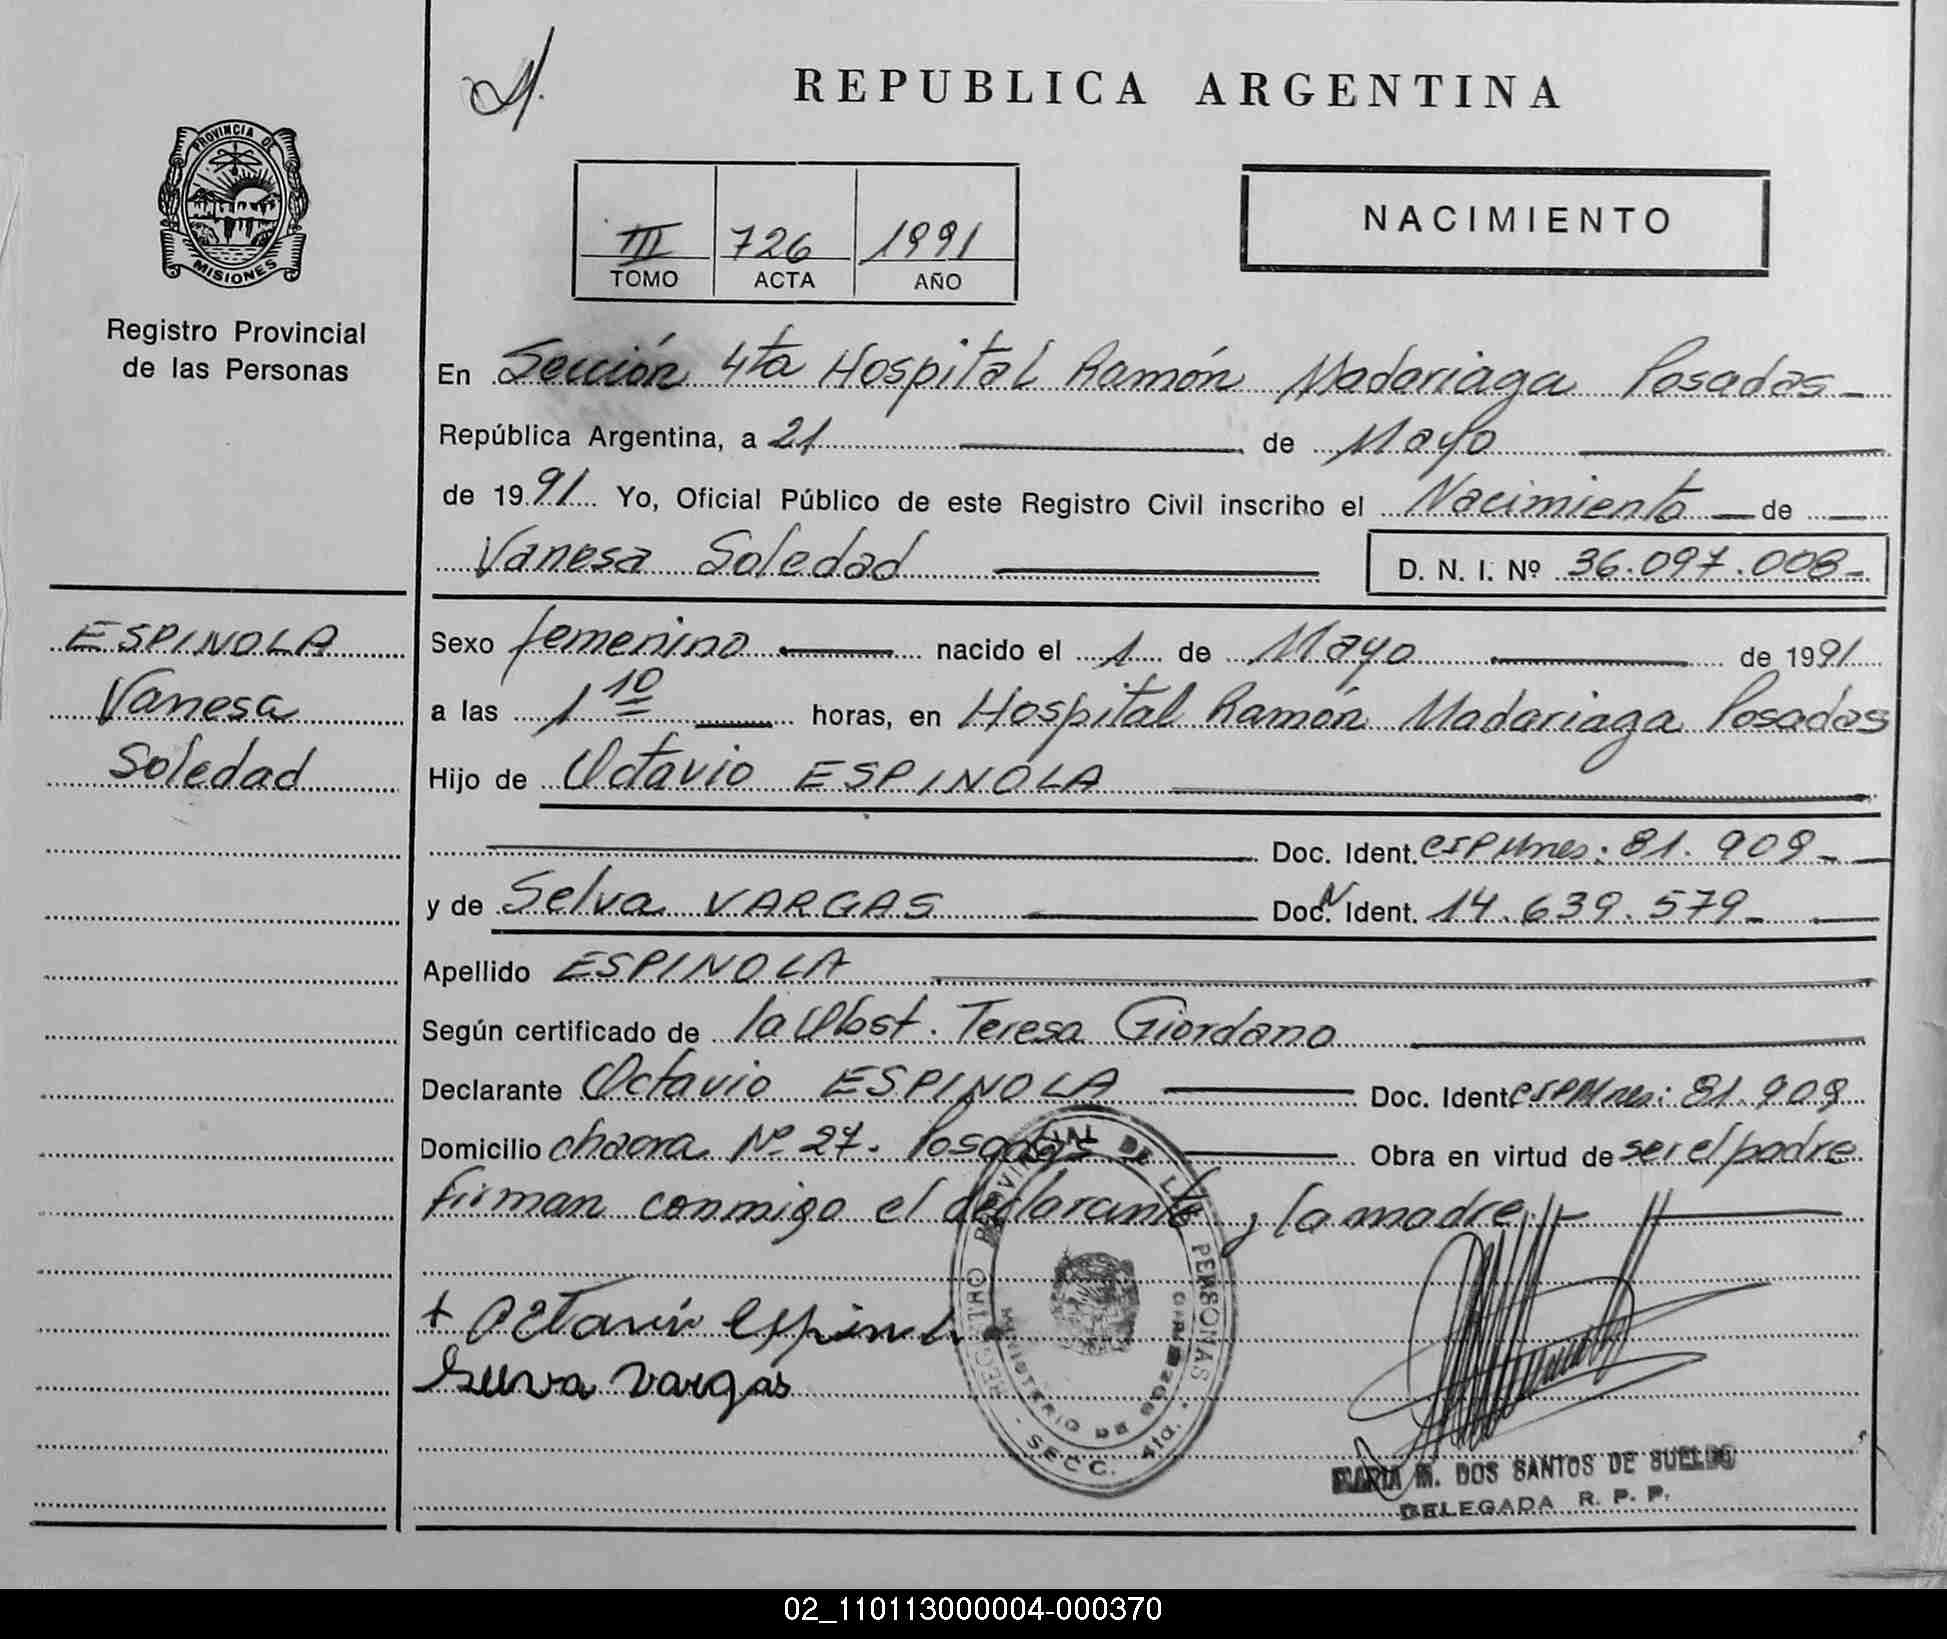 REPUBLICA ARGENTINA
PROVINCIA DE
MISIONES
Registro Provincial
de las Personas
III 726 1991
TOMO ACTA AÑO
NACIMIENTO
En Sección 4ta Hospital Ramón Madariaga Posadas
República Argentina, a 21 de Mayo
de 1991 Yo, Oficial Público de este Registro Civil inscribo el Nacimiento de
Vanesa Soledad D. N. I. Nº 36.097.008
ESPINOLA
Vanesa
Soledad
Sexo femenino nacido el 1 de Mayo de 1991
a las 1 10 horas, en Hospital Ramón Madariaga Posadas
Hijo de Octavio ESPINOLA
Doc. Ident. 81.909
y de Selva VARGAS Doc. Ident. N 14.639.579
Apellido ESPINOLA
Según certificado de la Obst. Teresa Giordano
Declarante Octavio ESPINOLA Doc. Ident. 81.909
Domicilio chacra Nº 27. Posadas Obra en virtud de ser el padre
firman conmigo el declarante y la madre
REGISTRO PROVINCIAL DE L PERSONAS
MINISTERIO DE
SECC. 4ta.
Selva Vargas
MARIA M. DOS SANTOS DE SUELDO
DELEGADA R. P. P.
02_110113000004-000370